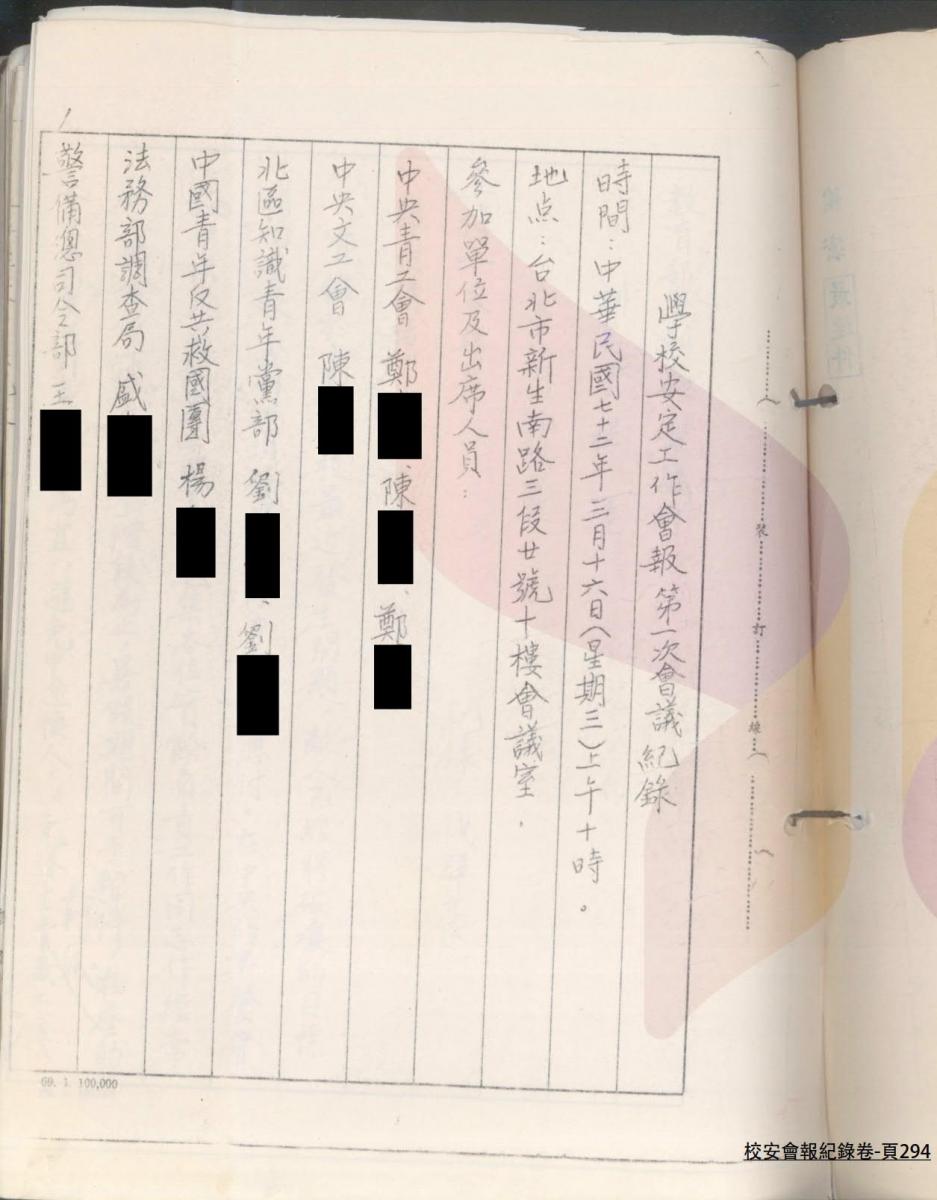 學校安定工作會報第一次會議紀錄
時間：中華民國七十二年三月十六日（星期三）上午十時。
地点：台北市新生南路三段廿號十樓會議室．
參加單位及出席人員：
中央青工會 鄭、陳、鄭
中央文工會 陳
北區知識青年黨部 劉、劉
中國青年反共救國團 楊
法務部調查局 盛
警備總司令部 王
裝
訂
線
69. 1 100,000
校安會報紀錄卷-頁294